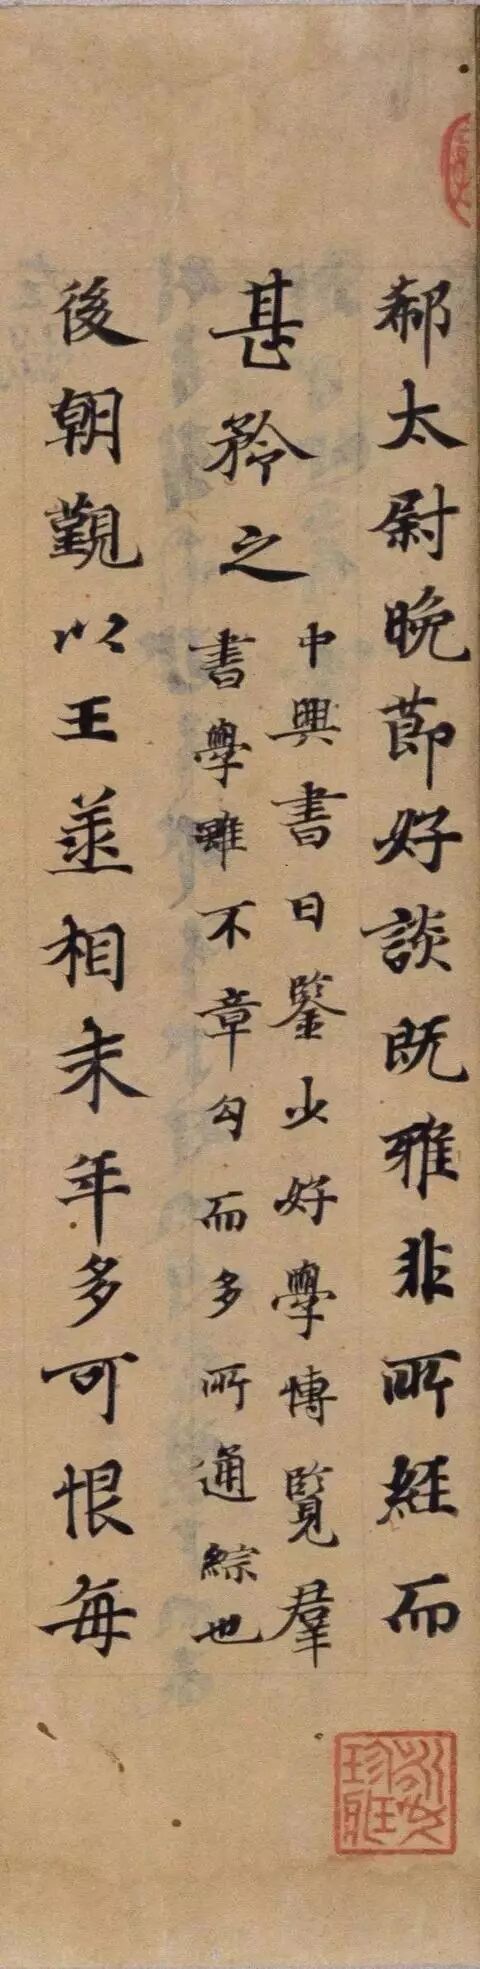 郗太尉晚莭好談既雅非所經而
甚矜之
中興書曰鑒少好學愽覽羣
書學雖不章勾而多所通綜也
後朝覲以王丞相末年多可恨每